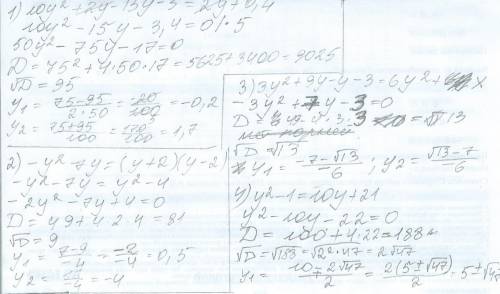 1) 10y² + 2y - 15y - 3 = 2y + 0,4
10y² - 15y - 3,4 = 0 | · 5
50y² - 75y - 17 = 0
D = 75² + 4·50·17 = 5625 + 3400 = 9025
√D = 95
y₁ = (75-95)/(2·50) = -20/100 = -0,2
y₂ = (75+95)/100 = 170/100 = 1,7
2) -y² - 7y = (y+2)(y-2)
-y² - 7y = y² - 4
-2y² - 7y + 4 = 0
D = 49 + 4·2·4 = 81
√D = 9
y₁ = (7-9)/-4 = -2/-4 = 0,5
y₂ = 16/-4 = -4
3) 3y² + 9y - y - 3 = 6y² +
-3y² + 7y - 3 = 0
√D = √13
y₁ = (-7-√13)/6 ; y₂ = (√13-7)/6
4) y² - 1 = 10y + 21
y² - 10y - 22 = 0
D = 100 + 4·22 = 188
√D = √188 = √2²·47 = 2√47
y₁ = (10 ± 2√47)/2 = 2(5±√47)/2 = 5±√47